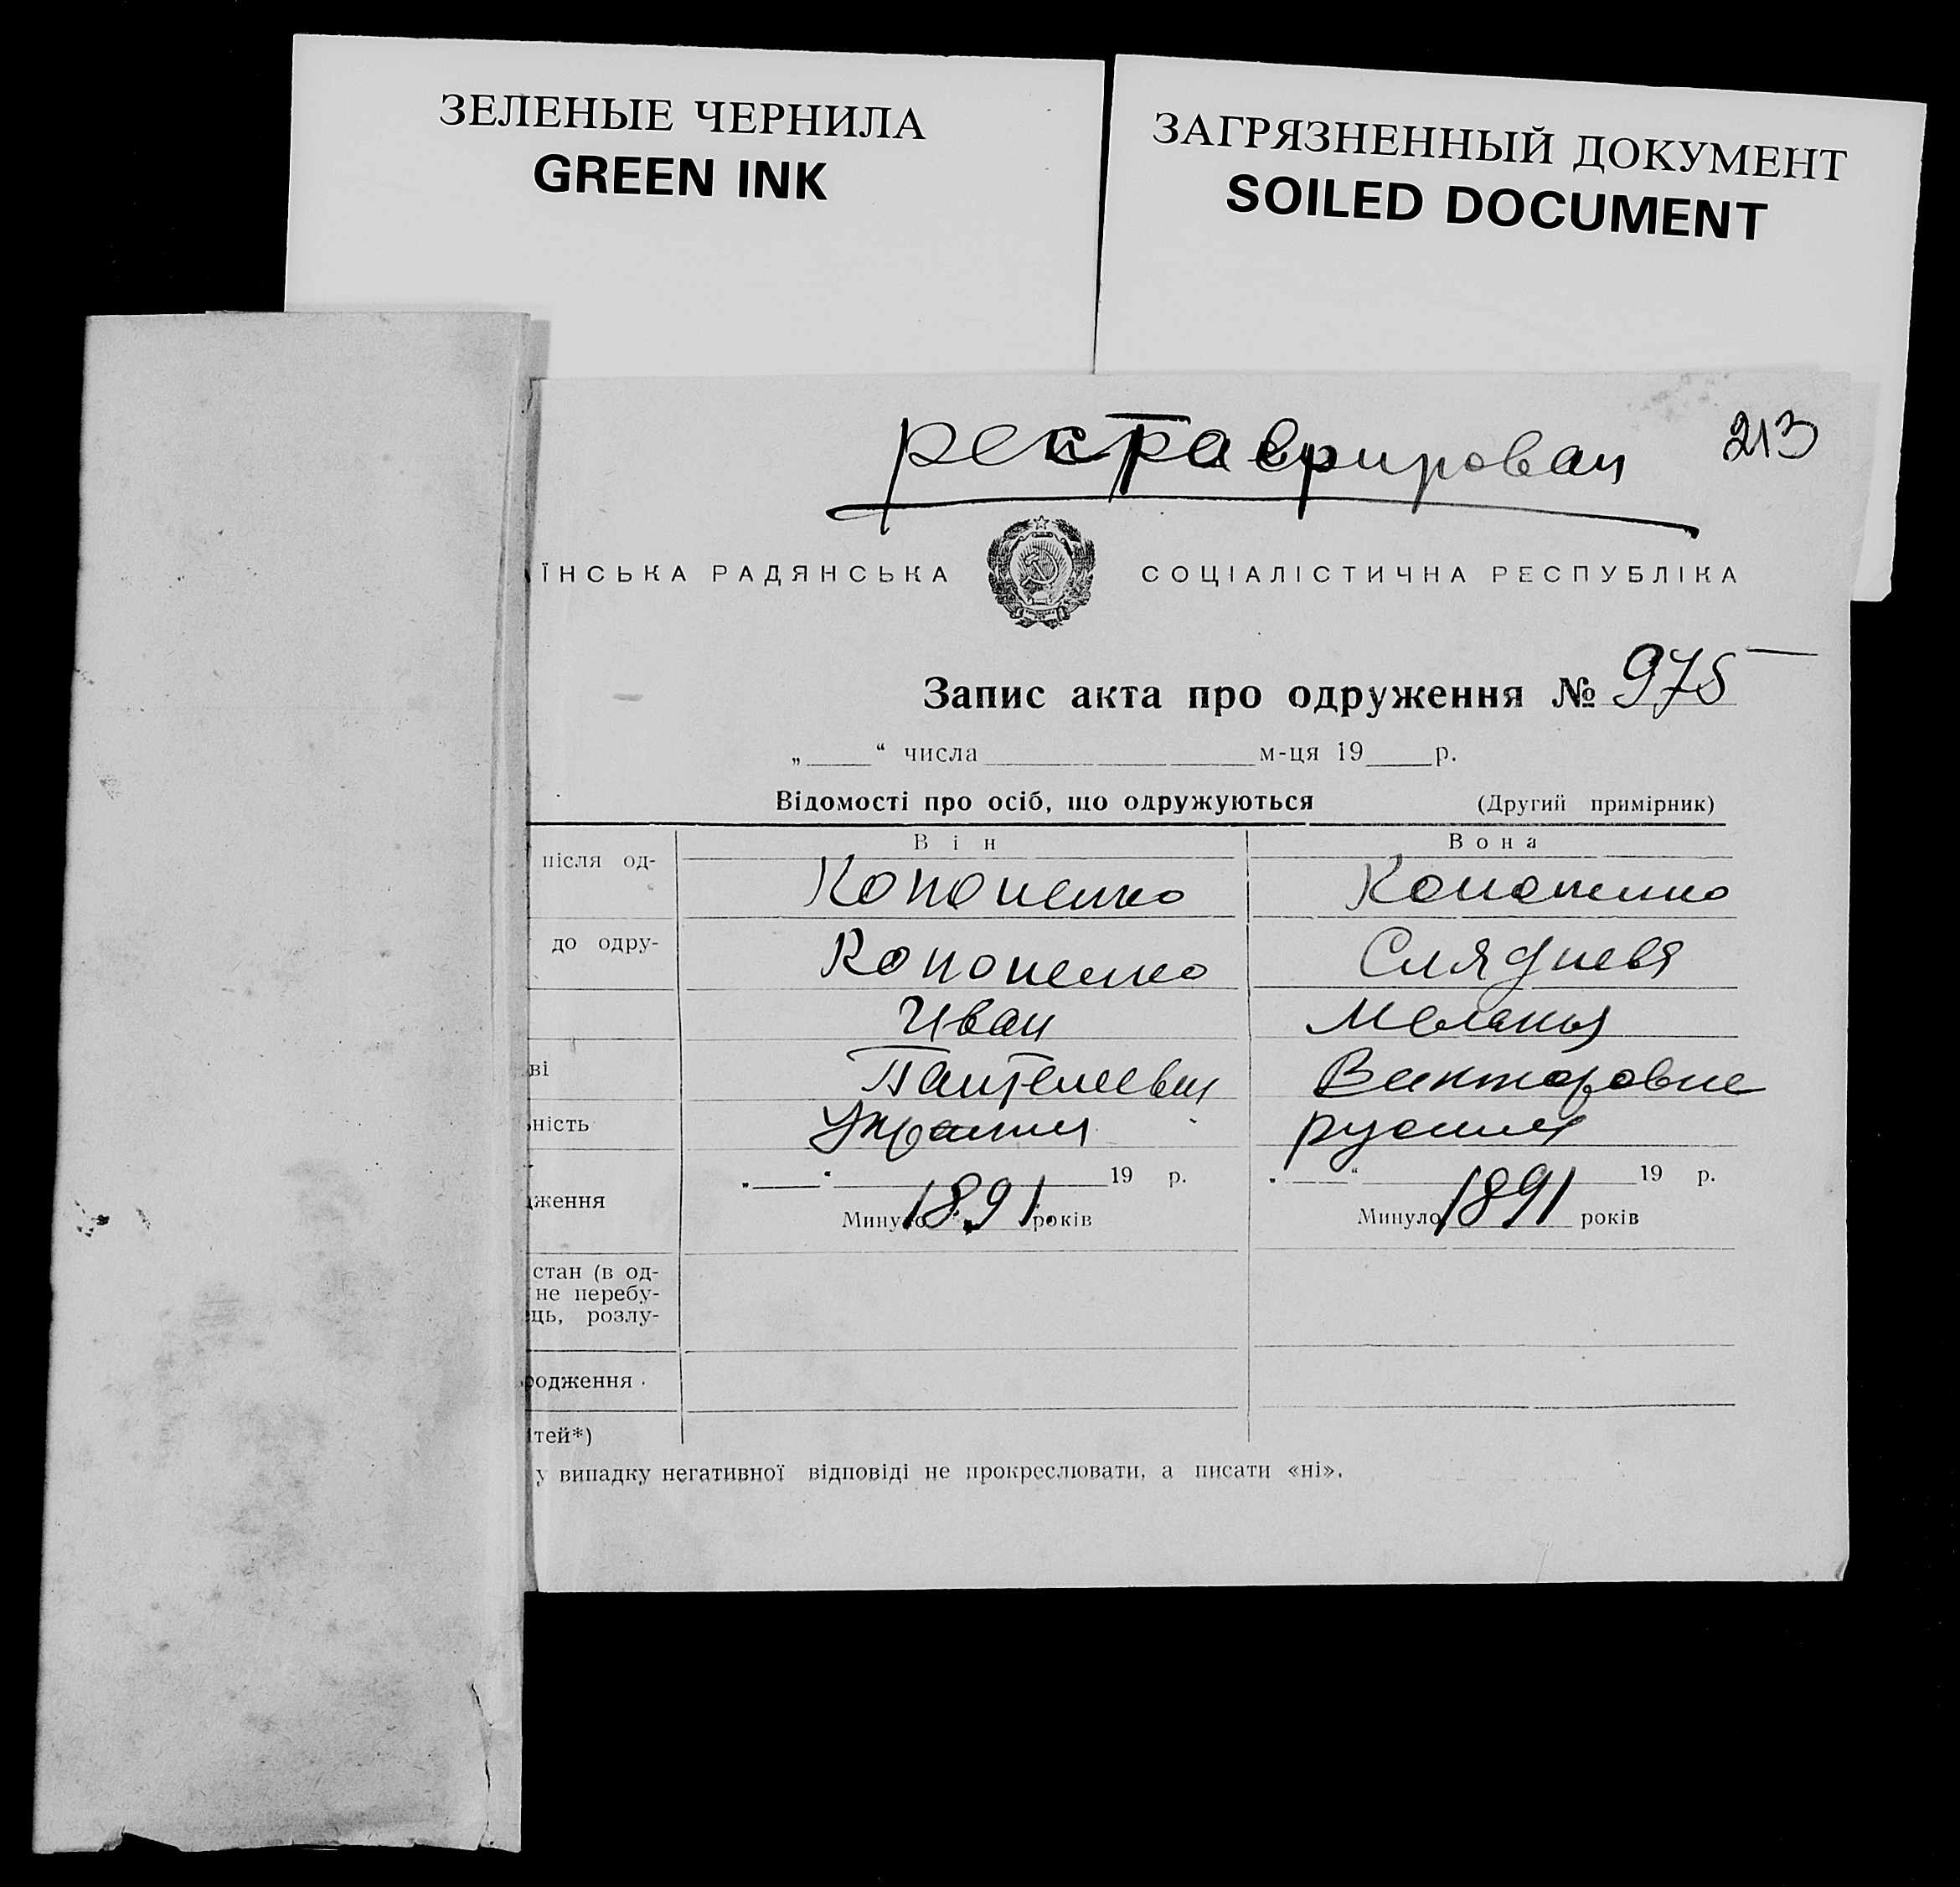 ЗЕЛЕНЫЕ ЧЕРНИЛА
GREEN INK
ЗАГРЯЗНЕННЫЙ ДОКУМЕНТ
SOILED DOCUMENT
реставрирован 213
ЇНСЬКА РАДЯНСЬКА СОЦІАЛІСТИЧНА РЕСПУБЛІКА
Запис акта про одруження № 975
„ “ числа м-ця 19 р.
Відомості про осіб, що одружуються (Другий примірник)
Він Вона
після од- Кононенко Кононенко
до одру- Кононенко Сляднева
Иван Меланья
ві Пантелеевич Викторовна
ність русская
„ “ 19 р. „ “ 19 р.
ження Минуло 1891 років Минуло 1891 років
стан (в од-
не перебу-
ць, розлу-
родження
тей*)
у випадку негативної відповіді не прокреслювати, а писати «ні».